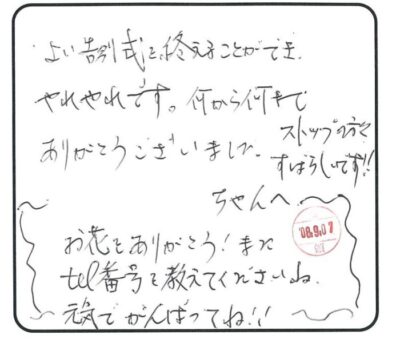 よい告別式を終えることができ、
やれやれです。何から何まで
ありがとうございました。
ストップの方々
すばらしいです!!
ちゃんへ
お花をありがとう!また
tel番号を教えてくださいね。
元気でがんばってね!!
08.9.07